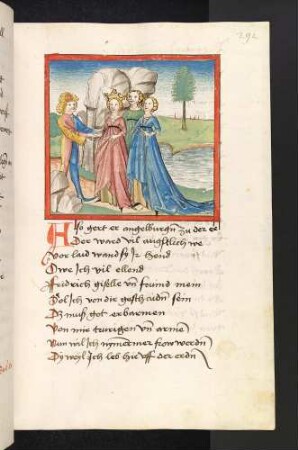 292
Also gert er angelburgn zu der ee
Der ward vil angstlich we
Vor laid wand sy Ir hend
Owe Ich vil ellend
Fridrich geselle vn fraund mein
Sol Ich von dir
Dz muß got erbarmen
Von mir trurigen vn armē
Nun wil Ich nymermer frow werdn
Dy weyl Ich leb hie vff der erdn